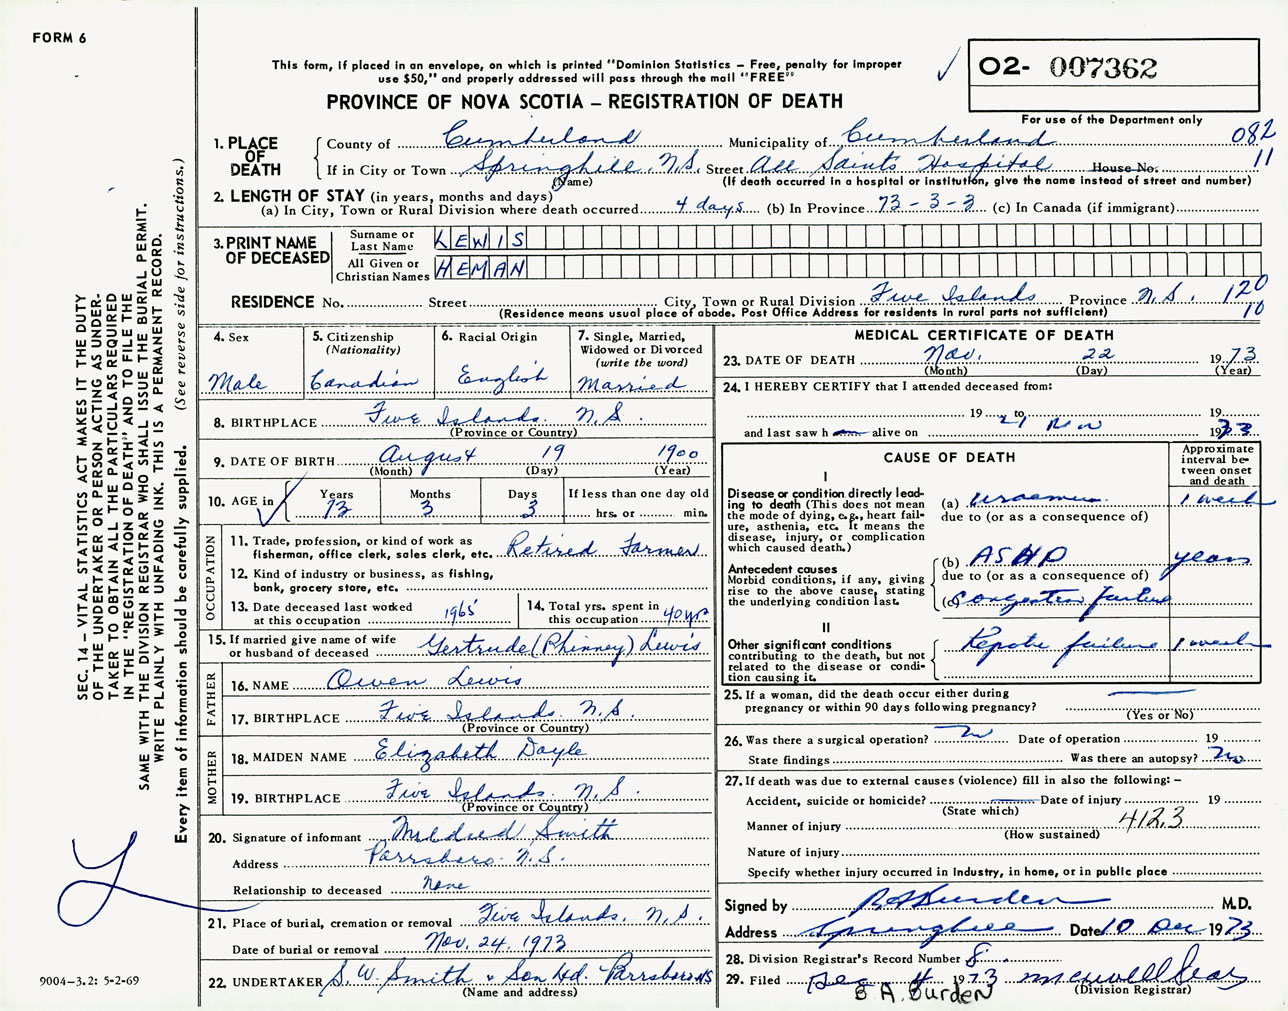 FORM 6
This form, if placed in an envelope, on which is printed "Dominion Statistics – Free, penalty for improper
use $50," and properly addressed will pass through the mail "FREE"
PROVINCE OF NOVA SCOTIA – REGISTRATION OF DEATH
02- 007362
For use of the Department only
082
11
1. PLACE OF DEATH
County of Cumberland Municipality of Cumberland
If in City or Town Springhill, N.S. Street All Saints Hospital House No.
(Name) (If death occurred in a hospital or institution, give the name instead of street and number)
2. LENGTH OF STAY (in years, months and days)
(a) In City, Town or Rural Division where death occurred 4 days (b) In Province 73-3-3 (c) In Canada (if immigrant)
3. PRINT NAME OF DECEASED
Surname or Last Name LEWIS
All Given or Christian Names HEMAN
RESIDENCE No. Street City, Town or Rural Division Five Islands Province N.S. 120
(Residence means usual place of abode. Post Office Address for residents in rural parts not sufficient) 10
4. Sex
Male
5. Citizenship
(Nationality)
Canadian
6. Racial Origin
English
7. Single, Married,
Widowed or Divorced
(write the word)
Married
8. BIRTHPLACE Five Islands N.S.
(Province or Country)
9. DATE OF BIRTH August 19 1900
(Month) (Day) (Year)
10. AGE in Years Months Days If less than one day old
73 3 3 hrs. or min.
OCCUPATION
11. Trade, profession, or kind of work as
fisherman, office clerk, sales clerk, etc. Retired Farmer
12. Kind of industry or business, as fishing,
bank, grocery store, etc.
13. Date deceased last worked
at this occupation 1965
14. Total yrs. spent in
this occupation 40 yrs
15. If married give name of wife
or husband of deceased Gertrude (Phinney) Lewis
FATHER
16. NAME Owen Lewis
17. BIRTHPLACE Five Islands N.S.
(Province or Country)
MOTHER
18. MAIDEN NAME Elizabeth Doyle
19. BIRTHPLACE Five Islands N.S.
(Province or Country)
20. Signature of informant Mildred Smith
Address Parrsboro N.S.
Relationship to deceased None
21. Place of burial, cremation or removal Five Islands, N.S.
Date of burial or removal Nov. 24, 1973
22. UNDERTAKER S. W. Smith & Son Ltd. Parrsboro NS
(Name and address)
MEDICAL CERTIFICATE OF DEATH
23. DATE OF DEATH Nov. 22 1973
(Month) (Day) (Year)
24. I HEREBY CERTIFY that I attended deceased from:
19 to 19
and last saw h alive on 21 Nov 1973
CAUSE OF DEATH
Approximate
interval be-
tween onset
and death
I
Disease or condition directly lead-
ing to death (This does not mean
the mode of dying, e.g., heart fail-
ure, asthenia, etc. it means the
disease, injury, or complication
which caused death.)
(a) uraemia 1 week
due to (or as a consequence of)
Antecedent causes
Morbid conditions, if any, giving
rise to the above cause, stating
the underlying condition last.
(b) ASHD years
due to (or as a consequence of)
(c) congestive failure
II
Other significant conditions
contributing to the death, but not
related to the disease or condi-
tion causing it.
Hepatic failure 1 week
25. If a woman, did the death occur either during
pregnancy or within 90 days following pregnancy?
(Yes or No)
26. Was there a surgical operation? no Date of operation 19
State findings Was there an autopsy? no
27. If death was due to external causes (violence) fill in also the following: –
Accident, suicide or homicide? Date of injury 19
(State which)
Manner of injury 412.3
(How sustained)
Nature of injury
Specify whether injury occurred in industry, in home, or in public place
Signed by Burden M.D.
Address Springhill Date 10 Dec 1973
28. Division Registrar's Record Number 8
29. Filed Dec 1973
(Division Registrar)
B A. Burden
SEC. 14 – VITAL STATISTICS ACT MAKES IT THE DUTY
OF THE UNDERTAKER OR PERSON ACTING AS UNDER-
TAKER TO OBTAIN ALL THE PARTICULARS REQUIRED
IN THE "REGISTRATION OF DEATH" AND TO FILE THE
SAME WITH THE DIVISION REGISTRAR WHO SHALL ISSUE THE BURIAL PERMIT.
WRITE PLAINLY WITH UNFADING INK. THIS IS A PERMANENT RECORD.
Every item of information should be carefully supplied. (See reverse side for instructions.)
9004-3.2: 5-2-69